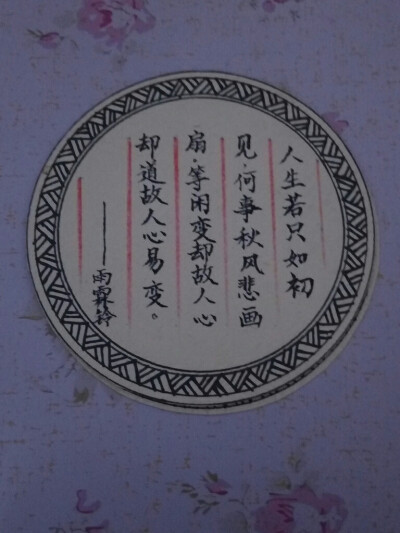 人生若只如初
见·何事秋风悲画
扇·等闲变却故人心
却道故人心易变。
——雨霖铃